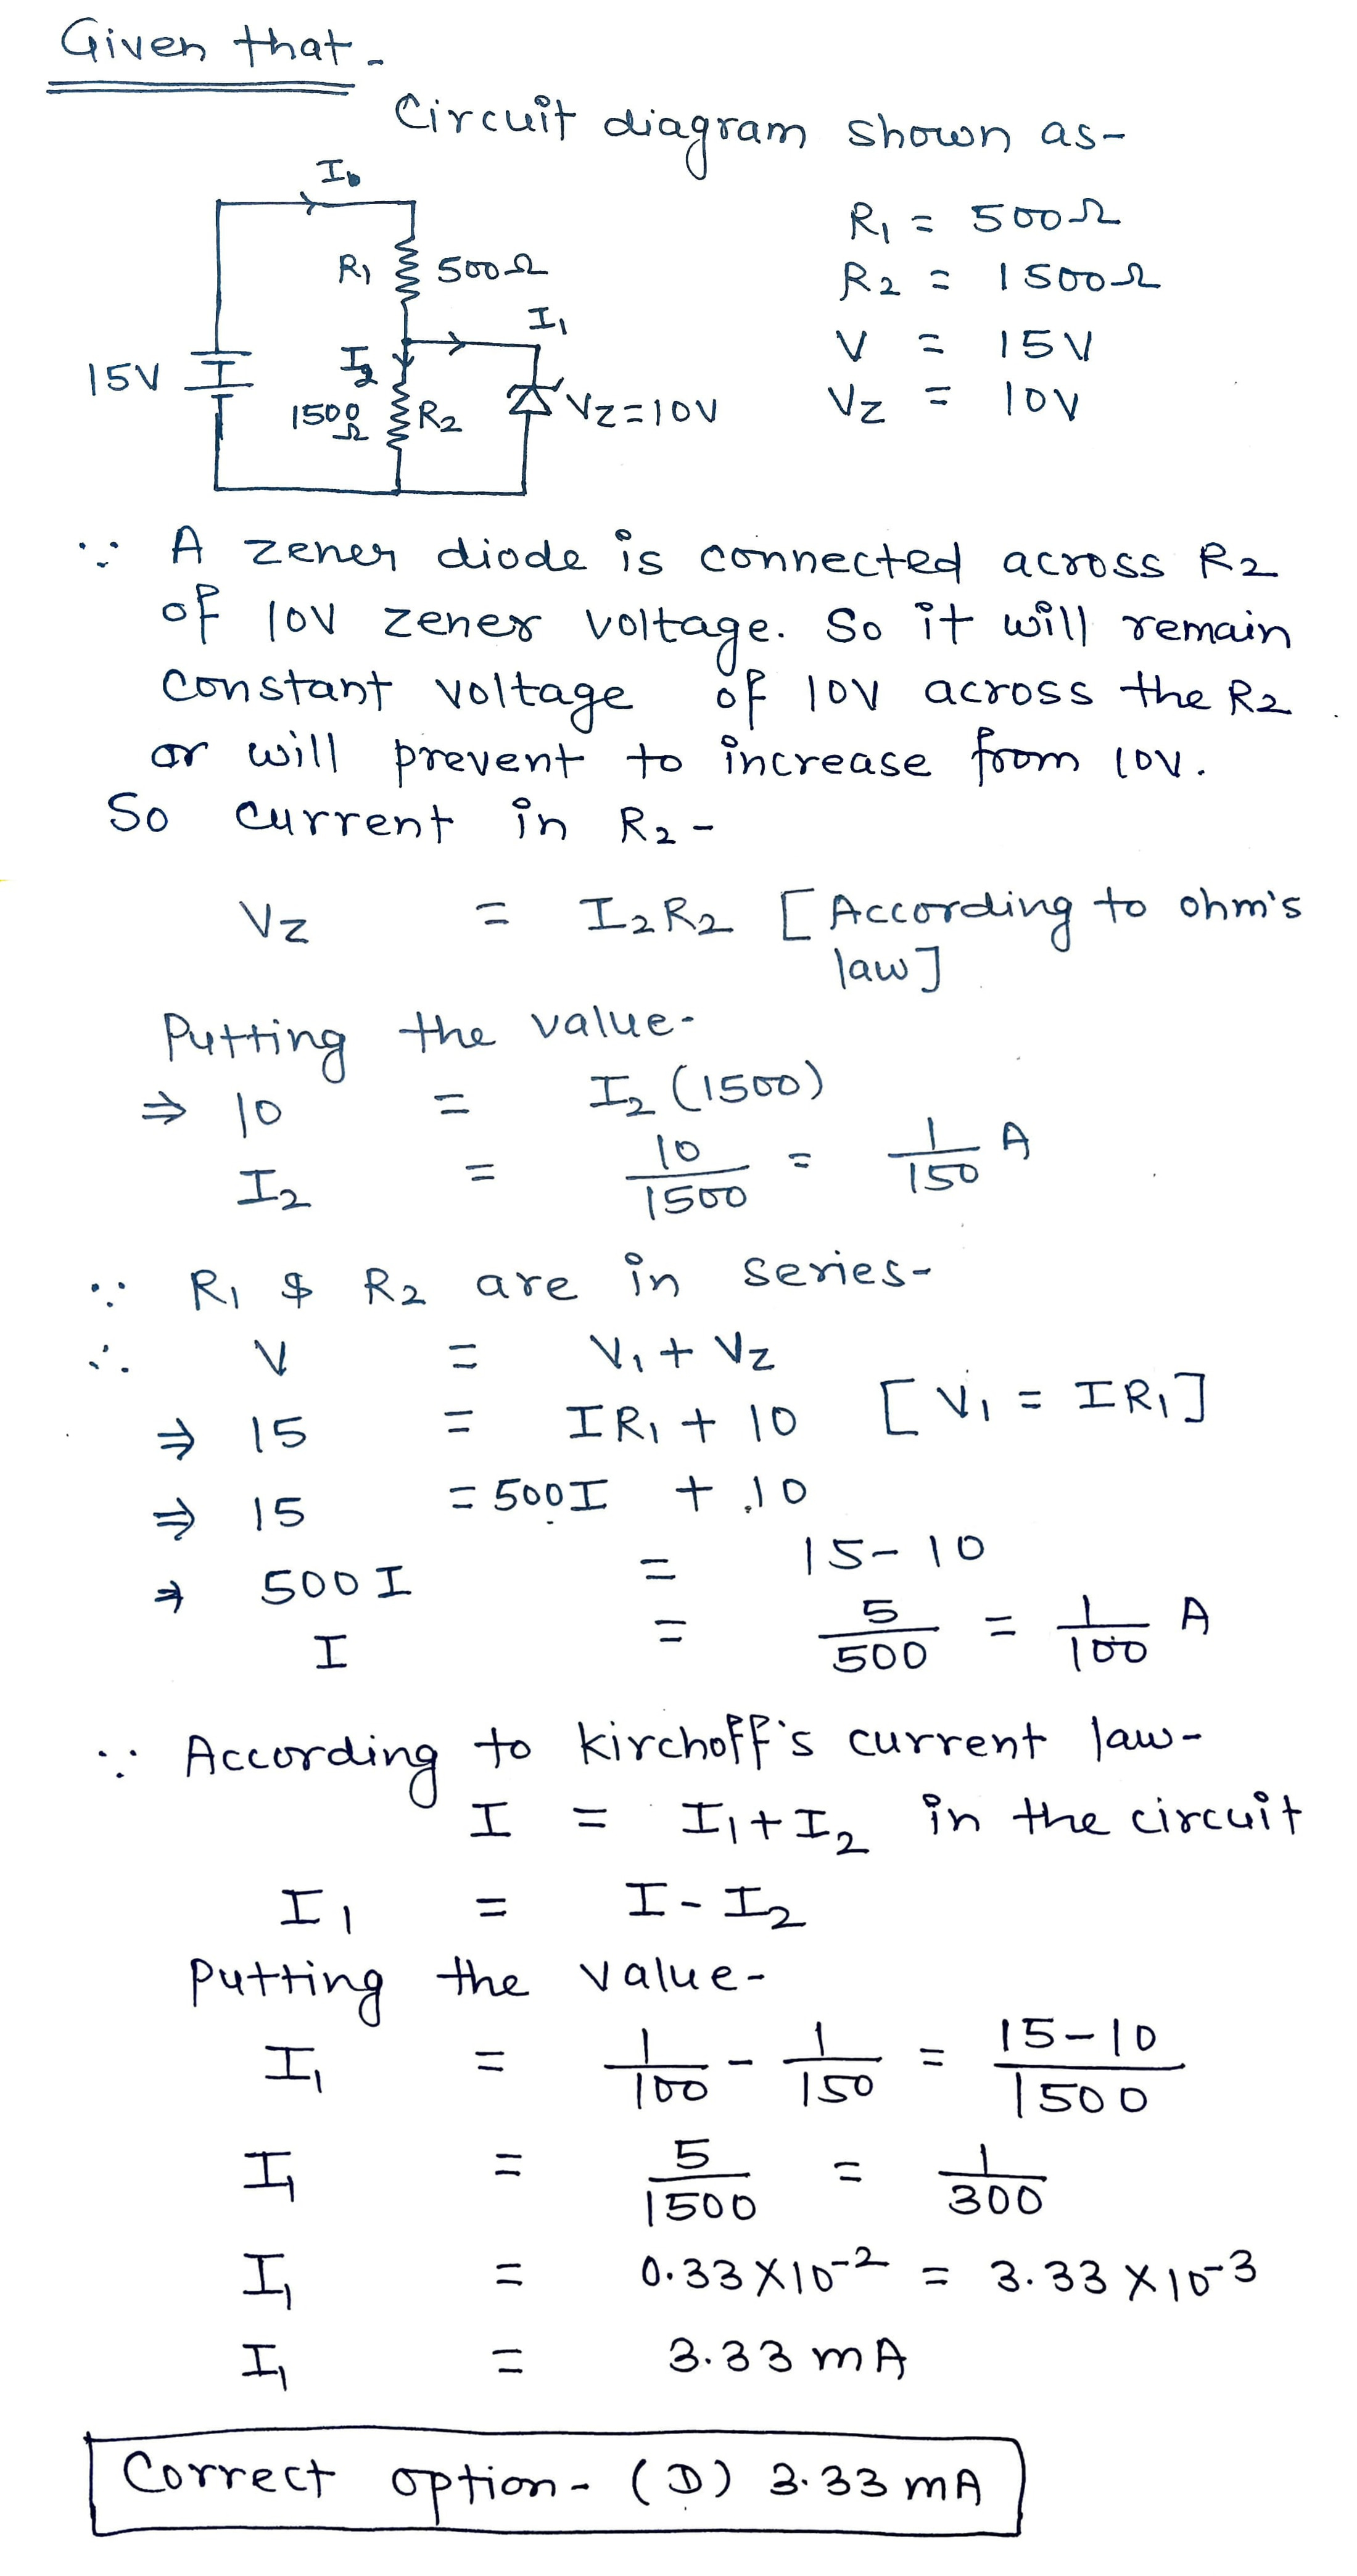 Given that -
Circuit diagram shown as-
I₀
R₁ 500Ω
I₁
15V
I₂
1500 Ω R₂
VZ=10V
R₁ = 500Ω
R₂ = 1500Ω
V = 15V
VZ = 10V
∵ A zener diode is connected across R₂
of 10V zener voltage. So it will remain
constant voltage of 10V across the R₂
or will prevent to increase from 10V.
So current in R₂-
VZ = I₂R₂ [According to ohm's
law]
Putting the value-
⇒ 10 = I₂(1500)
I₂ = 10/1500 = 1/150 A
∵ R₁ $ R₂ are in series-
∴ V = V₁ + VZ
⇒ 15 = IR₁ + 10 [V₁ = IR₁]
⇒ 15 = 500I + 10
⇒ 500I = 15-10
I = 5/500 = 1/100 A
∵ According to kirchoff's current law-
I = I₁+I₂ in the circuit
I₁ = I-I₂
Putting the value-
I₁ = 1/100 - 1/150 = 15-10/1500
I₁ = 5/1500 = 1/300
I₁ = 0.33X10⁻² = 3.33X10⁻³
I₁ = 3.33 mA
Correct option- (D) 3.33 mA